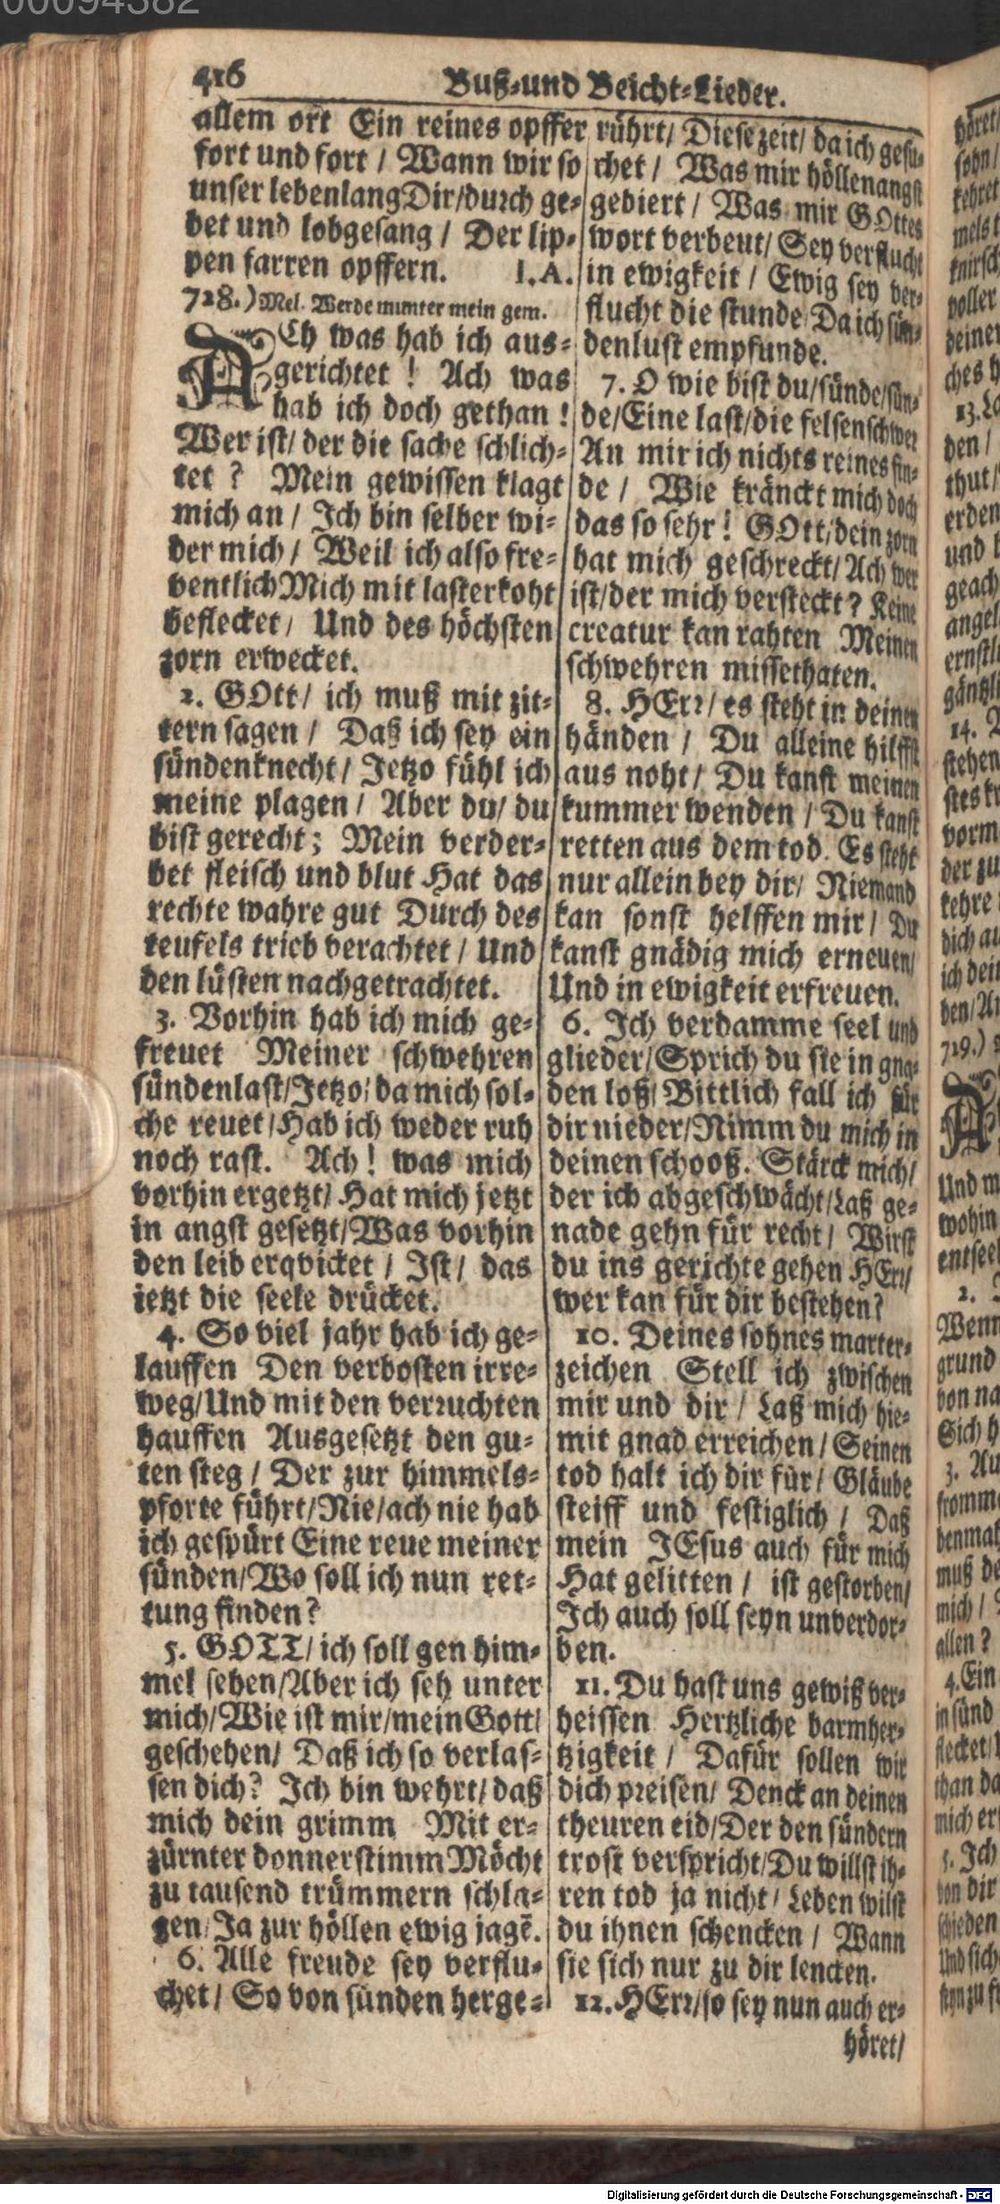 00094382
416 Buß-und Beicht-Lieder.
allem ort Ein reines opffer
fort und fort / Wann wir so
unser lebenlang Dir/durch ge-
bet und lobgesang / Der lip-
pen farren opffern. I. A.
728.) Mel. Werde munter mein gem.
ACh was hab ich aus-
gerichtet ! Ach was
hab ich doch gethan !
Wer ist/ der die sache schlich-
tet ? Mein gewissen klagt
mich an / Ich bin selber wi-
der mich / Weil ich also fre-
ventlich Mich mit lasterkoht
beflecket / Und des höchsten
zorn erwecket.
2. GOtt/ ich muß mit zit-
tern sagen / Daß ich sey ein
sündenknecht / Jetzo fühl ich
meine plagen / Aber du/ du
bist gerecht; Mein verder-
bet fleisch und blut Hat das
rechte wahre gut Durch des
teufels trieb verachtet / Und
den lüsten nachgetrachtet.
3. Vorhin hab ich mich ge-
freuet Meiner schwehren
sündenlast/Jetzo/ da mich sol-
che reuet/Hab ich weder ruh
noch rast. Ach! was mich
vorhin ergetzt/ Hat mich jetzt
in angst gesetzt/Was vorhin
den leib erqvicket / Ist/ das
jetzt die seele drücket.
4. So viel jahr hab ich ge-
lauffen Den verbosten irre-
weg/Und mit den verruchten
hauffen Ausgesetzt den gu-
ten steg / Der zur himmels-
pforte führt/Nie/ach nie hab
ich gespürt Eine reue meiner
sünden/Wo soll ich nun ret-
tung finden?
5. GOTT/ ich soll gen him-
mel sehen/Aber ich seh unter
mich/Wie ist mir/mein Gott/
geschehen/ Daß ich so verlas-
sen dich? Ich bin wehrt/ daß
mich dein grimm Mit er-
zürnter donnerstimm Möcht
zu tausend trümmern schla-
gen/Ja zur höllen ewig jagē.
6. Alle freude sey verflu-
chet / So von sünden herge-
rührt/ Diese zeit/ da ich gesu-
chet / Was mir höllenangst
gebiert / Was mir GOttes
wort verbeut/ Sey verflucht
in ewigkeit / Ewig sey ver-
flucht die stunde Da ich sün-
denlust empfunde.
7. O wie bist du/sünde/sün-
de/Eine last/die felsenschwer
An mir ich nichts reines fin-
de / Wie kränckt mich doch
das so sehr! GOtt/dein zorn
hat mich geschreckt/ Ach wer
ist/der mich versteckt? Keine
creatur kan rahten Meinen
schwehren missethaten.
8. HErr/ es steht in deinen
händen / Du alleine hilffst
aus noht / Du kanst meinen
kummer wenden / Du kanst
retten aus dem tod. Es steht
nur allein bey dir/ Niemand
kan sonst helffen mir / Du
kanst gnädig mich erneuen/
Und in ewigkeit erfreuen.
6. Ich verdamme seel und
glieder/Sprich du sie in gna-
den loß/ Bittlich fall ich für
dir nieder/Nimm du mich in
deinen schooß. Stärck mich/
der ich abgeschwächt/Laß ge-
nade gehn für recht / Wirst
du ins gerichte gehen HErr/
wer kan für dir bestehen?
10. Deines sohnes marter-
zeichen Stell ich zwischen
mir und dir / Laß mich hie-
mit gnad erreichen / Seinen
tod halt ich dir für / Gläube
steiff und festiglich / Daß
mein JEsus auch für mich
Hat gelitten / ist gestorben/
Ich auch soll seyn unverdor-
ben.
11. Du hast uns gewiß ver-
heissen Hertzliche barmher-
tzigkeit / Dafür sollen wir
dich preisen/ Denck an deinen
theuren eid/Der den sündern
trost verspricht/Du willst ih-
ren tod ja nicht / Leben wilst
du ihnen schencken / Wann
sie sich nur zu dir lencken.
12. HErr/so sey nun auch er-
höret/
Digitalisierung gefördert durch die Deutsche Forschungsgemeinschaft - DFG